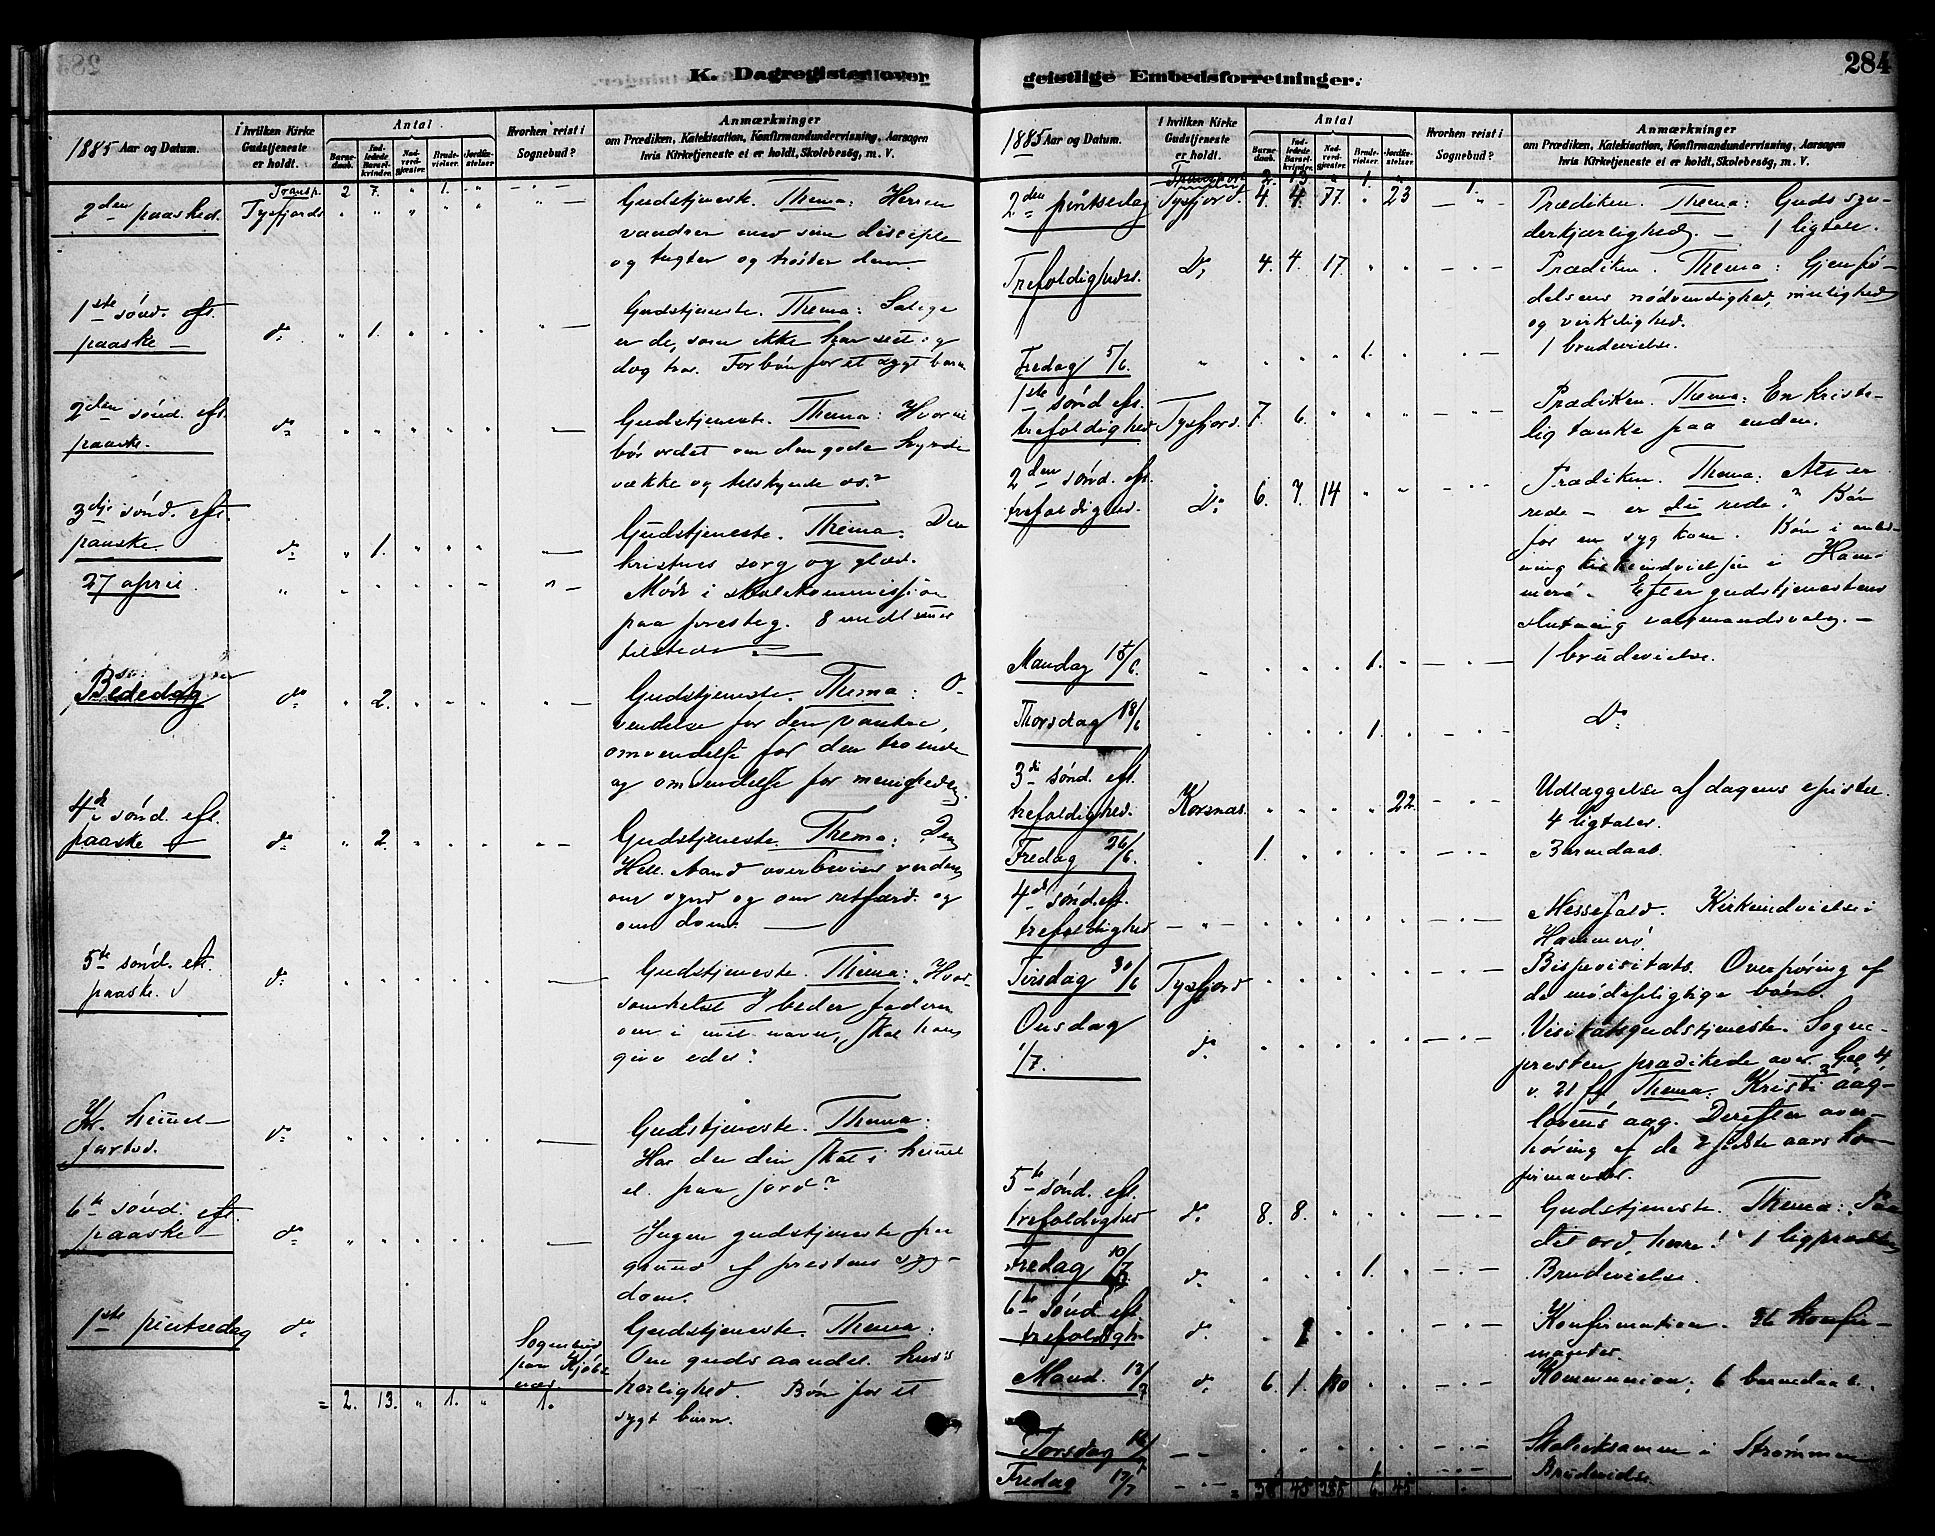 K. Dagregister over
1885 Aar og Datum.
I hvilken Kirke Gudstjeneste er holdt.
Antal
Barne-daab.
Ind-ledede Barsel-kvinder.
Nad-verd-gjester.
Brude-vielser.
Jordfæ-stelser.
Hvorhen reist i Sognebud?
Anmærkninger
om Prædiken, Katekisation, Konfirmandundervisning, Aarsagen
hvis Kirketjeneste ei er holdt, Skolebesøg, m. V.
Transp. 2 7. " 1. "
2den paasked. Tysfjord
Gudstjeneste. Thema: Herren
vandrer med sine disciple
og tugter og trøster dem.
1ste sønd. eft.
paaske - do 1.
Gudstjeneste. Thema: Salige
er de, som ikke har seet og
dog tror. Forbøn for et sygt barn
2den sønd. eft.
paaske. do
Gudstjeneste. Thema: Hvor
bør ordet om den gode hyrde
vække og tilskynde os?
3dje sønd. eft.
paaske. do 1.
Gudstjeneste. Thema: De
kristnes sorg og glæd.
27 april
Møde i skolekommission
paa foresteg. 8 medlemmer
tilstede.
Bededag do 2.
Gudstjeneste. Thema: O-
vendelse for den vantro,
omvendelse for den troende
og omvendelse for menigheden.
4de sønd. eft.
paaske do 2.
Gudstjeneste. Thema: Den
Hell. Aand overbeviser verden
om synd og om retfærd. og
om dom.
5te sønd. eft.
paaske. do
Gudstjeneste. Thema: "Hvad-
somhelst I beder faderen
om i mit navn, skal han
give eder."
Kr. himmel-
fartsd. do
Gudstjeneste. Thema:
Har du din skat i himmel
el. paa jord?
6te sønd. eft.
paaske do
Ingen gudstjeneste paa
grund af prestens syg-
dom.
1ste pintsedag do
Sognebud
paa Kjøbs
næs.
Gudstjeneste. Thema:
Om guds aands
herlighed. Bøn for et
sygt barn.
= 2. 13. " 1. " 1.
geistlige Embedsforretninger.
284
1885 Aar og Datum.
I hvilken Kirke Gudstjeneste er holdt.
Antal
Barne-daab.
Ind-ledede Barsel-kvinder.
Nad-verd-gjester.
Brude-vielser.
Jordfæ-stelser.
Hvorhen reist i Sognebud?
Anmærkninger
om Prædiken, Katekisation, Konfirmandundervisning, Aarsagen
hvis Kirketjeneste ei er holdt, Skolebesøg, m. V.
Transport 2. 13 " 1. " 1.
2den pintsedag Tysfjord. 4. 4. 77. " 23
Prædiken. Thema: Guds syn-
derkjærlighed. - 1 ligtale.
Trefoldighedss. Do 4. 4. 17
Prædiken. Thema: Gjenfø-
delsens nødvendighed, mulighed
og virkelighed.
Fredag 5/6. 1.
1 brudevielse.
1ste sønd eft.
trefoldighed Tysfjord. 7. 6.
Prædiken. Thema: En kriste-
lig tanke paa enden.
2den sønd. eft.
trefoldighed. Do 6. 7. 14
Prædiken. Thema: Alt er
rede - er du rede? Bøn
for en syg kone. Bøn i anled-
ning kirkeindvielsen i Ham-
merø. Efter gudstjenestens
slutning valgmandsvalg. -
Mandag 15/6. 1.
1 brudevielse.
Thorsdag 18/6 1.
Do
3die sønd. eft.
trefoldighed. Korsnæs. 22.
Udlæggelse af dagens epistel.
4 ligtaler.
Fredag 26/6. 1.
Barnedaab.
4de sønd. eft.
trefoldighed
Messefald. Kirkeindvielse i
Hammerø.
Tirsdag 30/6 Tysfjord
Bispevisitats. Overhøring af
de mødepligtige børn.
Onsdag
1/7. do
Visitatsgudstjeneste. Sogne-
presten prædikede over Gal 4
v. 21 ff Thema: Kristi aag-
lovens aag. Derefter over-
høring af de 2 sidste aars kon-
firmander.
5te sønd. eft.
trefoldighed do 8. 8.
Gudstjeneste. Thema: "Paa
dit ord, herre!" 1 ligprædiken
Fredag 10/7 do 1.
Brudevielse.
6te sønd eft
trefoldigh. do
Konfirmation. 36 konfir-
mander.
Mand. 13/7 do 6. 1. 180
Kommunion, 6 barnedaab.
Torsdag 16/7
Skoleeksamen i Strømmen
Fredag 17/7 1.
Brudevielse.
= 38 45 285 6. 45